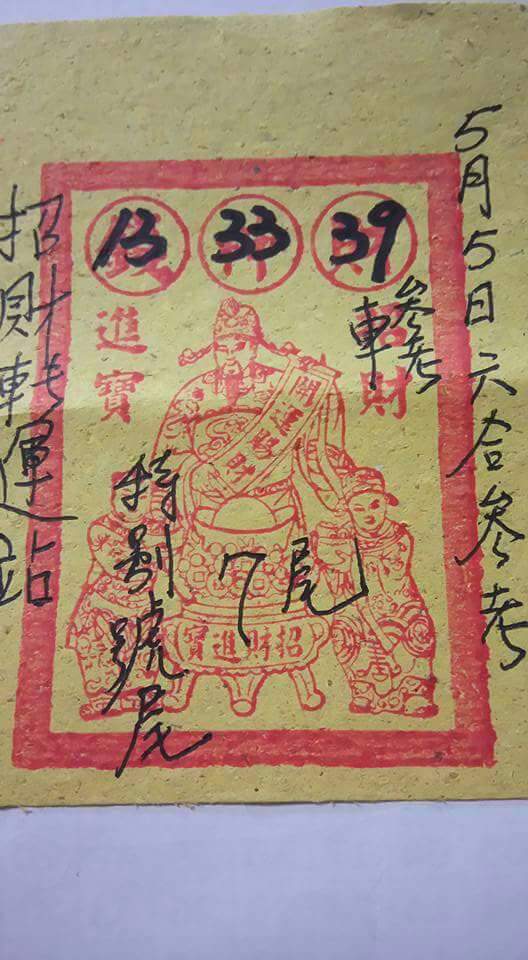 5月5日六合參考
13 33 39
招財
參考
車
進寶
開運
7尾
招財進寶
特別號尾
招財轉運站